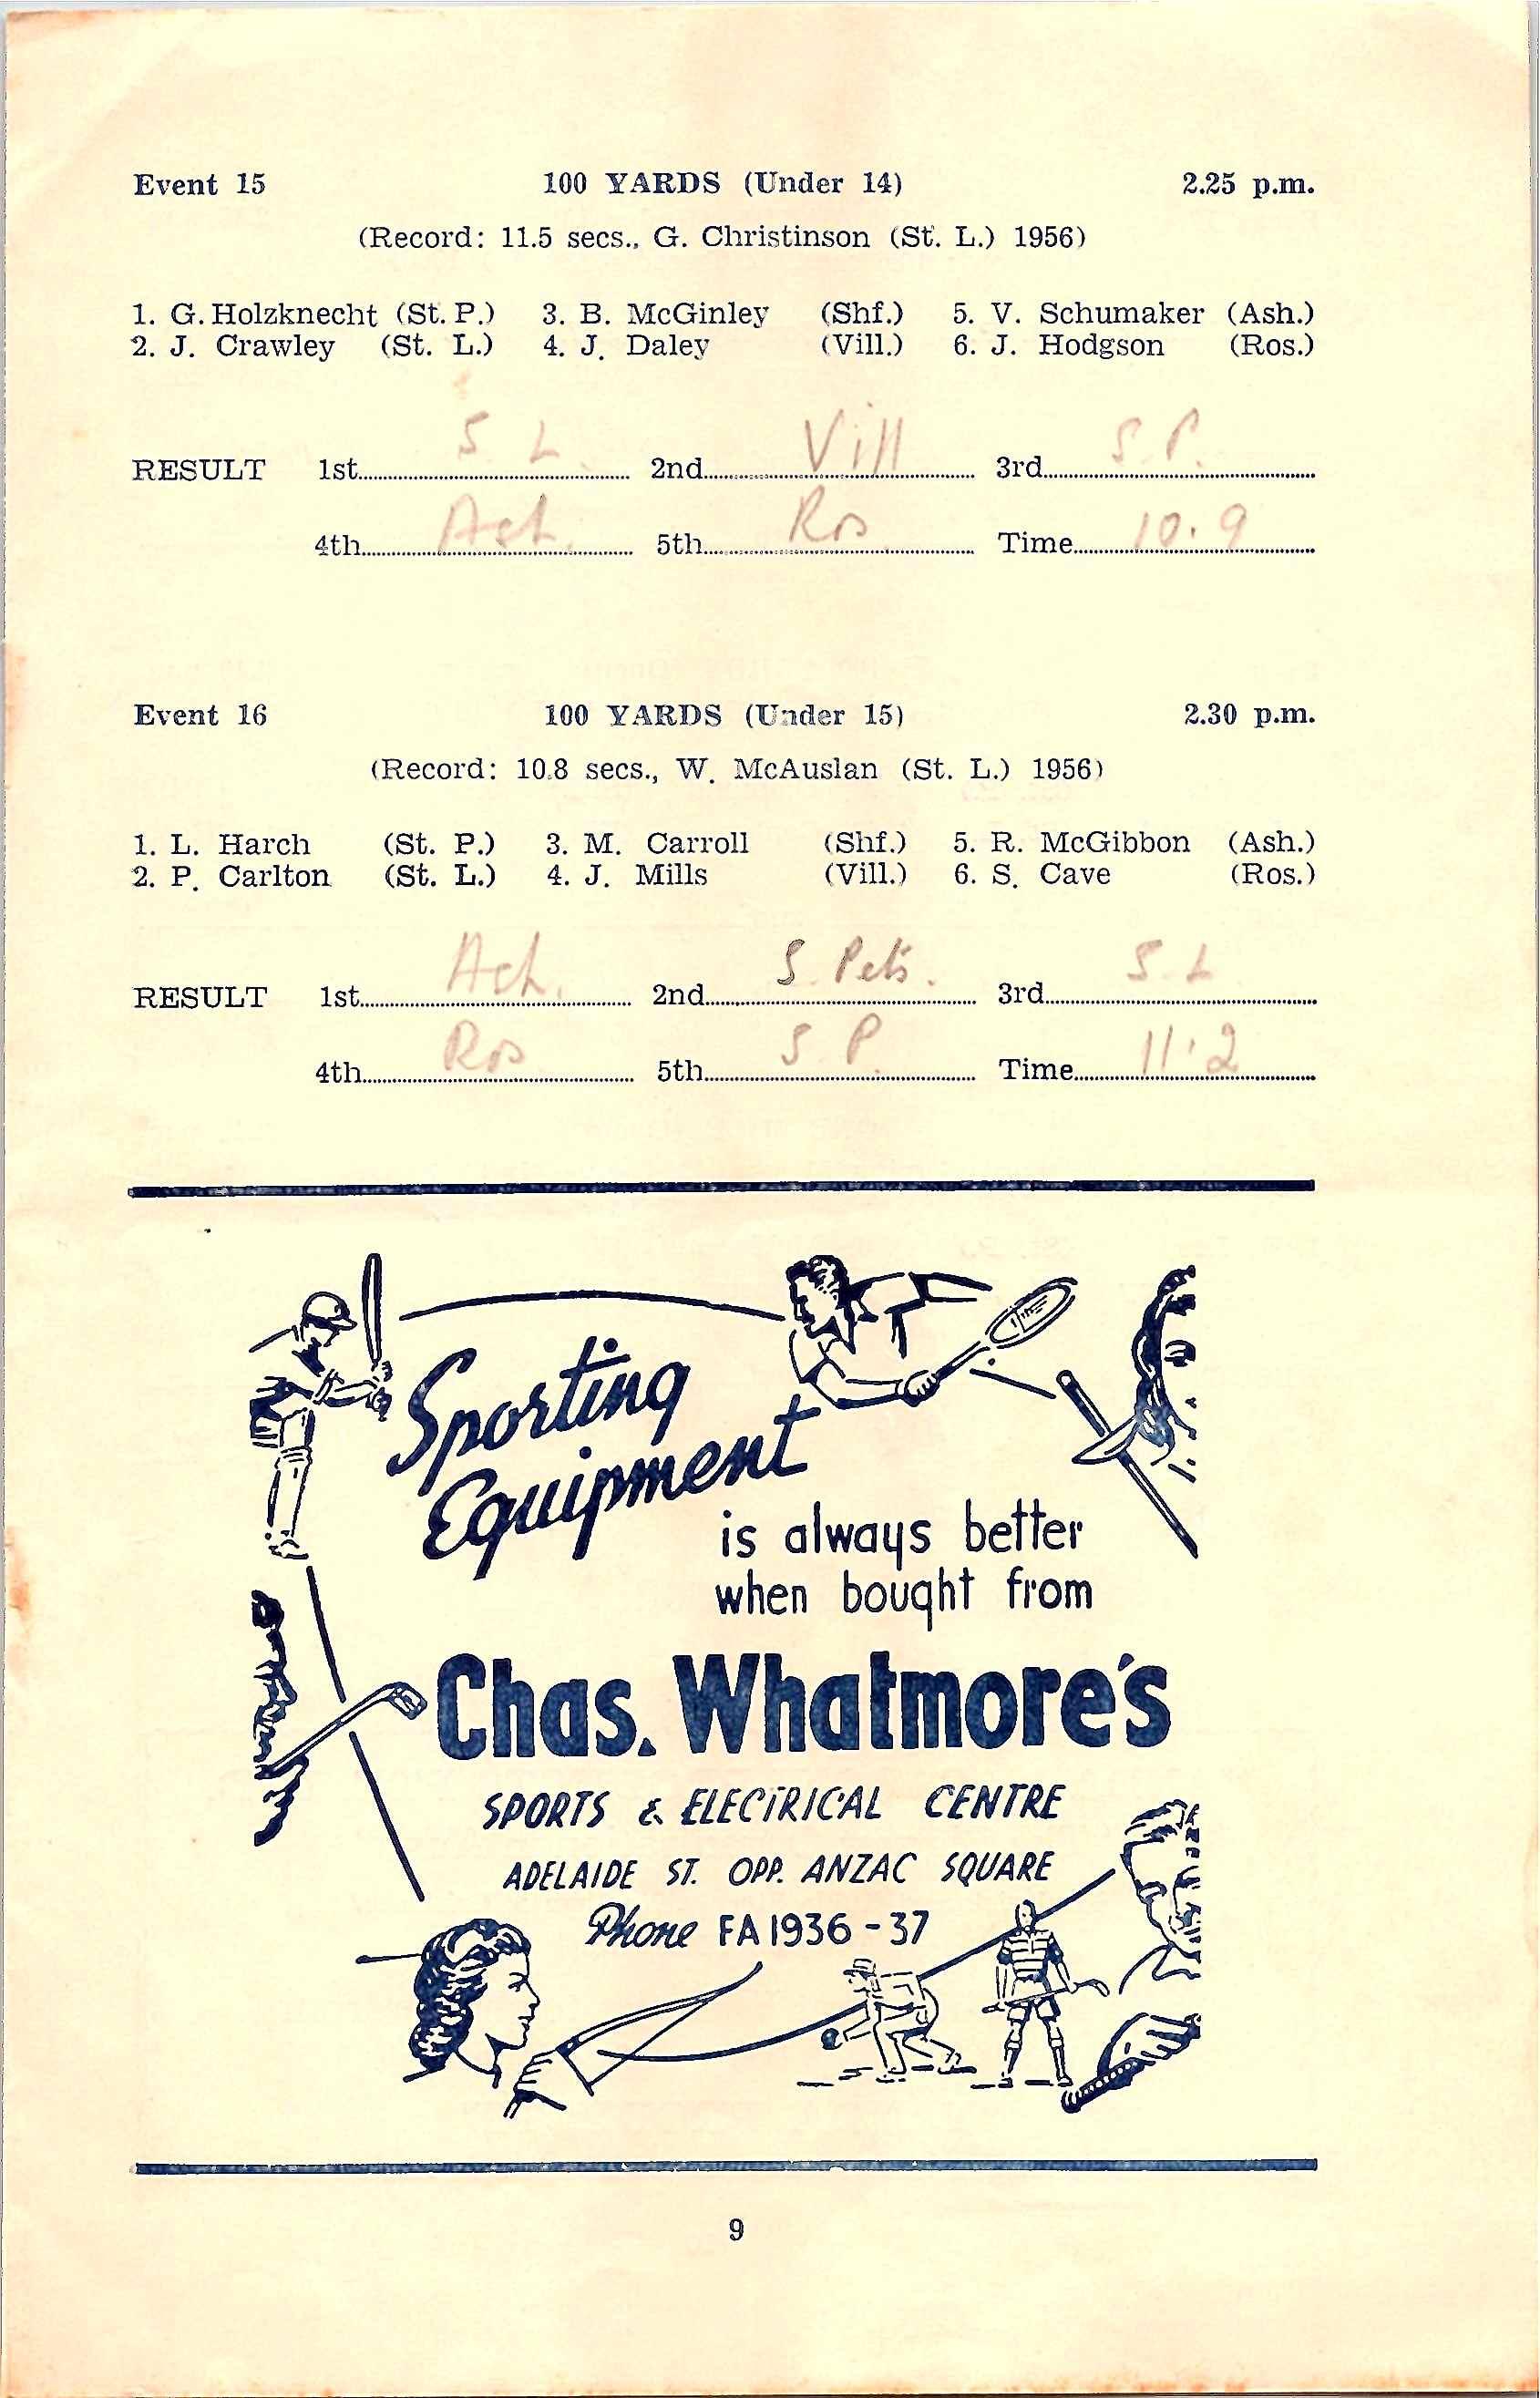 Event 15 100 YARDS (Under 14) 2.25 p.m.
(Record: 11.5 secs., G. Christinson (St. L.) 1956)
1. G. Holzknecht (St. P.) 3. B. McGinley (Shf.) 5. V. Schumaker (Ash.)
2. J. Crawley (St. L.) 4. J. Daley (Vill.) 6. J. Hodgson (Ros.)
RESULT 1st S L 2nd Vill 3rd S P.
4th Ash. 5th Ros Time 10.9
Event 16 100 YARDS (Under 15) 2.30 p.m.
(Record: 10.8 secs., W. McAuslan (St. L.) 1956)
1. L. Harch (St. P.) 3. M. Carroll (Shf.) 5. R. McGibbon (Ash.)
2. P. Carlton (St. L.) 4. J. Mills (Vill.) 6. S. Cave (Ros.)
RESULT 1st Ash. 2nd S. Pets. 3rd S. L
4th Ros 5th S P. Time 11.2
Sporting
Equipment
is always better
when bought from
Chas. Whatmore's
SPORTS & ELECTRICAL CENTRE
ADELAIDE ST. OPP. ANZAC SQUARE
Phone FA 1936-37
9